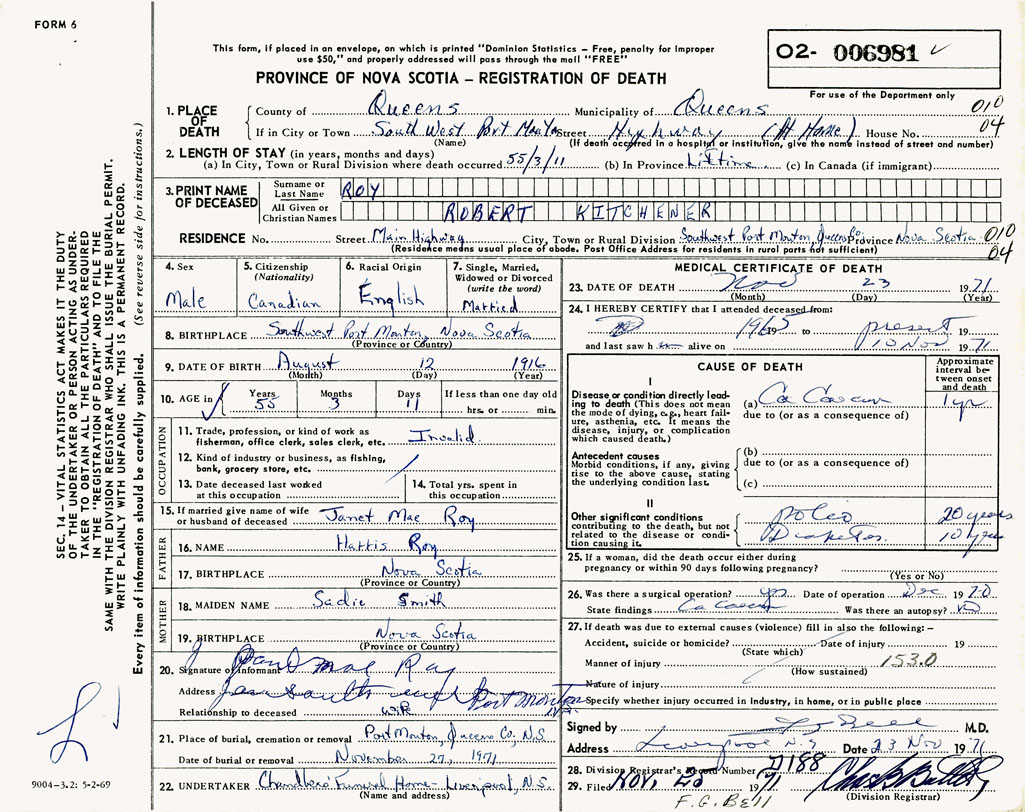 FORM 6
This form, if placed in an envelope, on which is printed "Dominion Statistics – Free, penalty for improper
use $50," and properly addressed will pass through the mail "FREE"
PROVINCE OF NOVA SCOTIA – REGISTRATION OF DEATH
02- 006981
For use of the Department only
1. PLACE OF DEATH
County of Queens Municipality of Queens 010
If in City or Town South West Port Mouton Street Highway (At Home) House No. 04
(Name) (If death occurred in a hospital or institution, give the name instead of street and number)
2. LENGTH OF STAY (in years, months and days)
(a) In City, Town or Rural Division where death occurred 55/3/11 (b) In Province Lifetime (c) In Canada (if immigrant)
3. PRINT NAME OF DECEASED
Surname or Last Name ROY
All Given or Christian Names ROBERT KITCHENER
RESIDENCE No. Street Main Highway City, Town or Rural Division Southwest Port Mouton, Queens Co. Province Nova Scotia 010
(Residence means usual place of abode. Post Office Address for residents in rural parts not sufficient) 04
4. Sex
Male
5. Citizenship
(Nationality)
Canadian
6. Racial Origin
English
7. Single, Married,
Widowed or Divorced
(write the word)
Married
8. BIRTHPLACE Southwest Port Mouton, Nova Scotia
(Province or Country)
9. DATE OF BIRTH August 12 1916
(Month) (Day) (Year)
10. AGE in Years 55 Months 3 Days 11 If less than one day old
hrs. or min.
OCCUPATION
11. Trade, profession, or kind of work as
fisherman, office clerk, sales clerk, etc. Invalid
12. Kind of industry or business, as fishing,
bank, grocery store, etc.
13. Date deceased last worked
at this occupation
14. Total yrs. spent in
this occupation
15. If married give name of wife
or husband of deceased Janet Mae Roy
FATHER
16. NAME Harris Roy
17. BIRTHPLACE Nova Scotia
(Province or Country)
MOTHER
18. MAIDEN NAME Sadie Smith
19. BIRTHPLACE Nova Scotia
(Province or Country)
20. Signature of informant Mae Roy
Address Port Mouton
Relationship to deceased wife
21. Place of burial, cremation or removal Port Mouton, Queens Co, N.S
Date of burial or removal November 27, 1971
22. UNDERTAKER Chandlers' Funeral Home - Liverpool, N.S.
(Name and address)
MEDICAL CERTIFICATE OF DEATH
23. DATE OF DEATH Nov 23 1971
(Month) (Day) (Year)
24. I HEREBY CERTIFY that I attended deceased from:
1965 to present 19
and last saw h alive on 10 Nov 1971
CAUSE OF DEATH
Approximate
interval be-
tween onset
and death
I
Disease or condition directly lead-
ing to death (This does not mean
the mode of dying, e.g., heart fail-
ure, asthenia, etc. It means the
disease, injury, or complication
which caused death.)
(a) Ca Caecum 1 yr
due to (or as a consequence of)
Antecedent causes
Morbid conditions, if any, giving
rise to the above cause, stating
the underlying condition last.
(b)
due to (or as a consequence of)
(c)
II
Other significant conditions
contributing to the death, but not
related to the disease or condi-
tion causing it.
polio 20 years
Diabetes 10 years
25. If a woman, did the death occur either during
pregnancy or within 90 days following pregnancy?
(Yes or No)
26. Was there a surgical operation? yes Date of operation Dec 1970
State findings Ca Caecum Was there an autopsy? No
27. If death was due to external causes (violence) fill in also the following: –
Accident, suicide or homicide? Date of injury 19
(State which)
Manner of injury 153.0
(How sustained)
Nature of injury
Specify whether injury occurred in Industry, in home, or in public place
Signed by Bell M.D.
Address Liverpool N.S Date 23 Nov 1971
28. Division Registrar's Record Number 1188
29. Filed Nov. 1971
(Division Registrar)
F.G. Bell
SEC. 14 – VITAL STATISTICS ACT MAKES IT THE DUTY
OF THE UNDERTAKER OR PERSON ACTING AS UNDER-
TAKER TO OBTAIN ALL THE PARTICULARS REQUIRED
IN THE "REGISTRATION OF DEATH" AND TO FILE THE
SAME WITH THE DIVISION REGISTRAR WHO SHALL ISSUE THE BURIAL PERMIT.
WRITE PLAINLY WITH UNFADING INK. THIS IS A PERMANENT RECORD.
Every item of information should be carefully supplied. (See reverse side for instructions.)
9004-3.2: 5-2-69